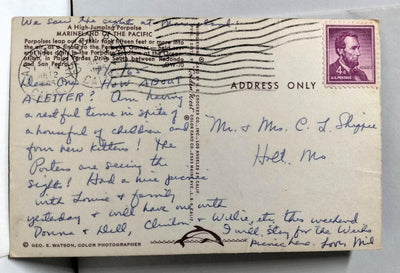 We saw the sights at Marineland!
A High-Jumping Porpoise
MARINELAND OF THE PACIFIC
Porpoises leap out of their tank fifteen feet or more into
the air, as a finale to the
in Palos Verdes Drive South between Redondo
and San Pedro,
Dear One, HOW ABOUT
A LETTER? Am having
a restful time in spite of
a houseful of children and
four new kittens! The
Porters are seeing the
sights! Had a nice picnic
with Louise & family
yesterday & will have one with
Donna & Dell, Clinton & Willie, etc, this weekend
I will stay for the Wells
picnic here. Love, Mil
© GEO. E. WATSON, COLOR PHOTOGRAPHER
ADDRESS ONLY
4¢
U.S. POSTAGE
Mr. & Mrs. C. L.
Holt, Mo